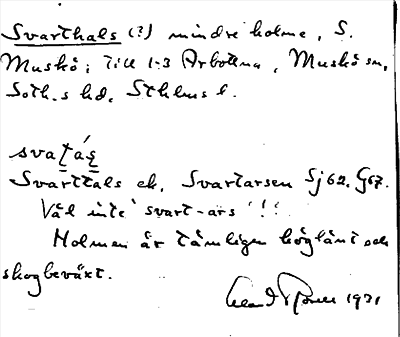 Svarthals (?) mindre holme, S.
Muskö; Till 1-3 Arbottna, Muskö sn,
Soth.s hd, Sthlms l.
svaṭás
Svarttals ek. Svartarsen Sj 62. G 67.
Väl inte 'svart-ars'!!
Holmen är tämligen höglänt och
skogbeväxt.
1931